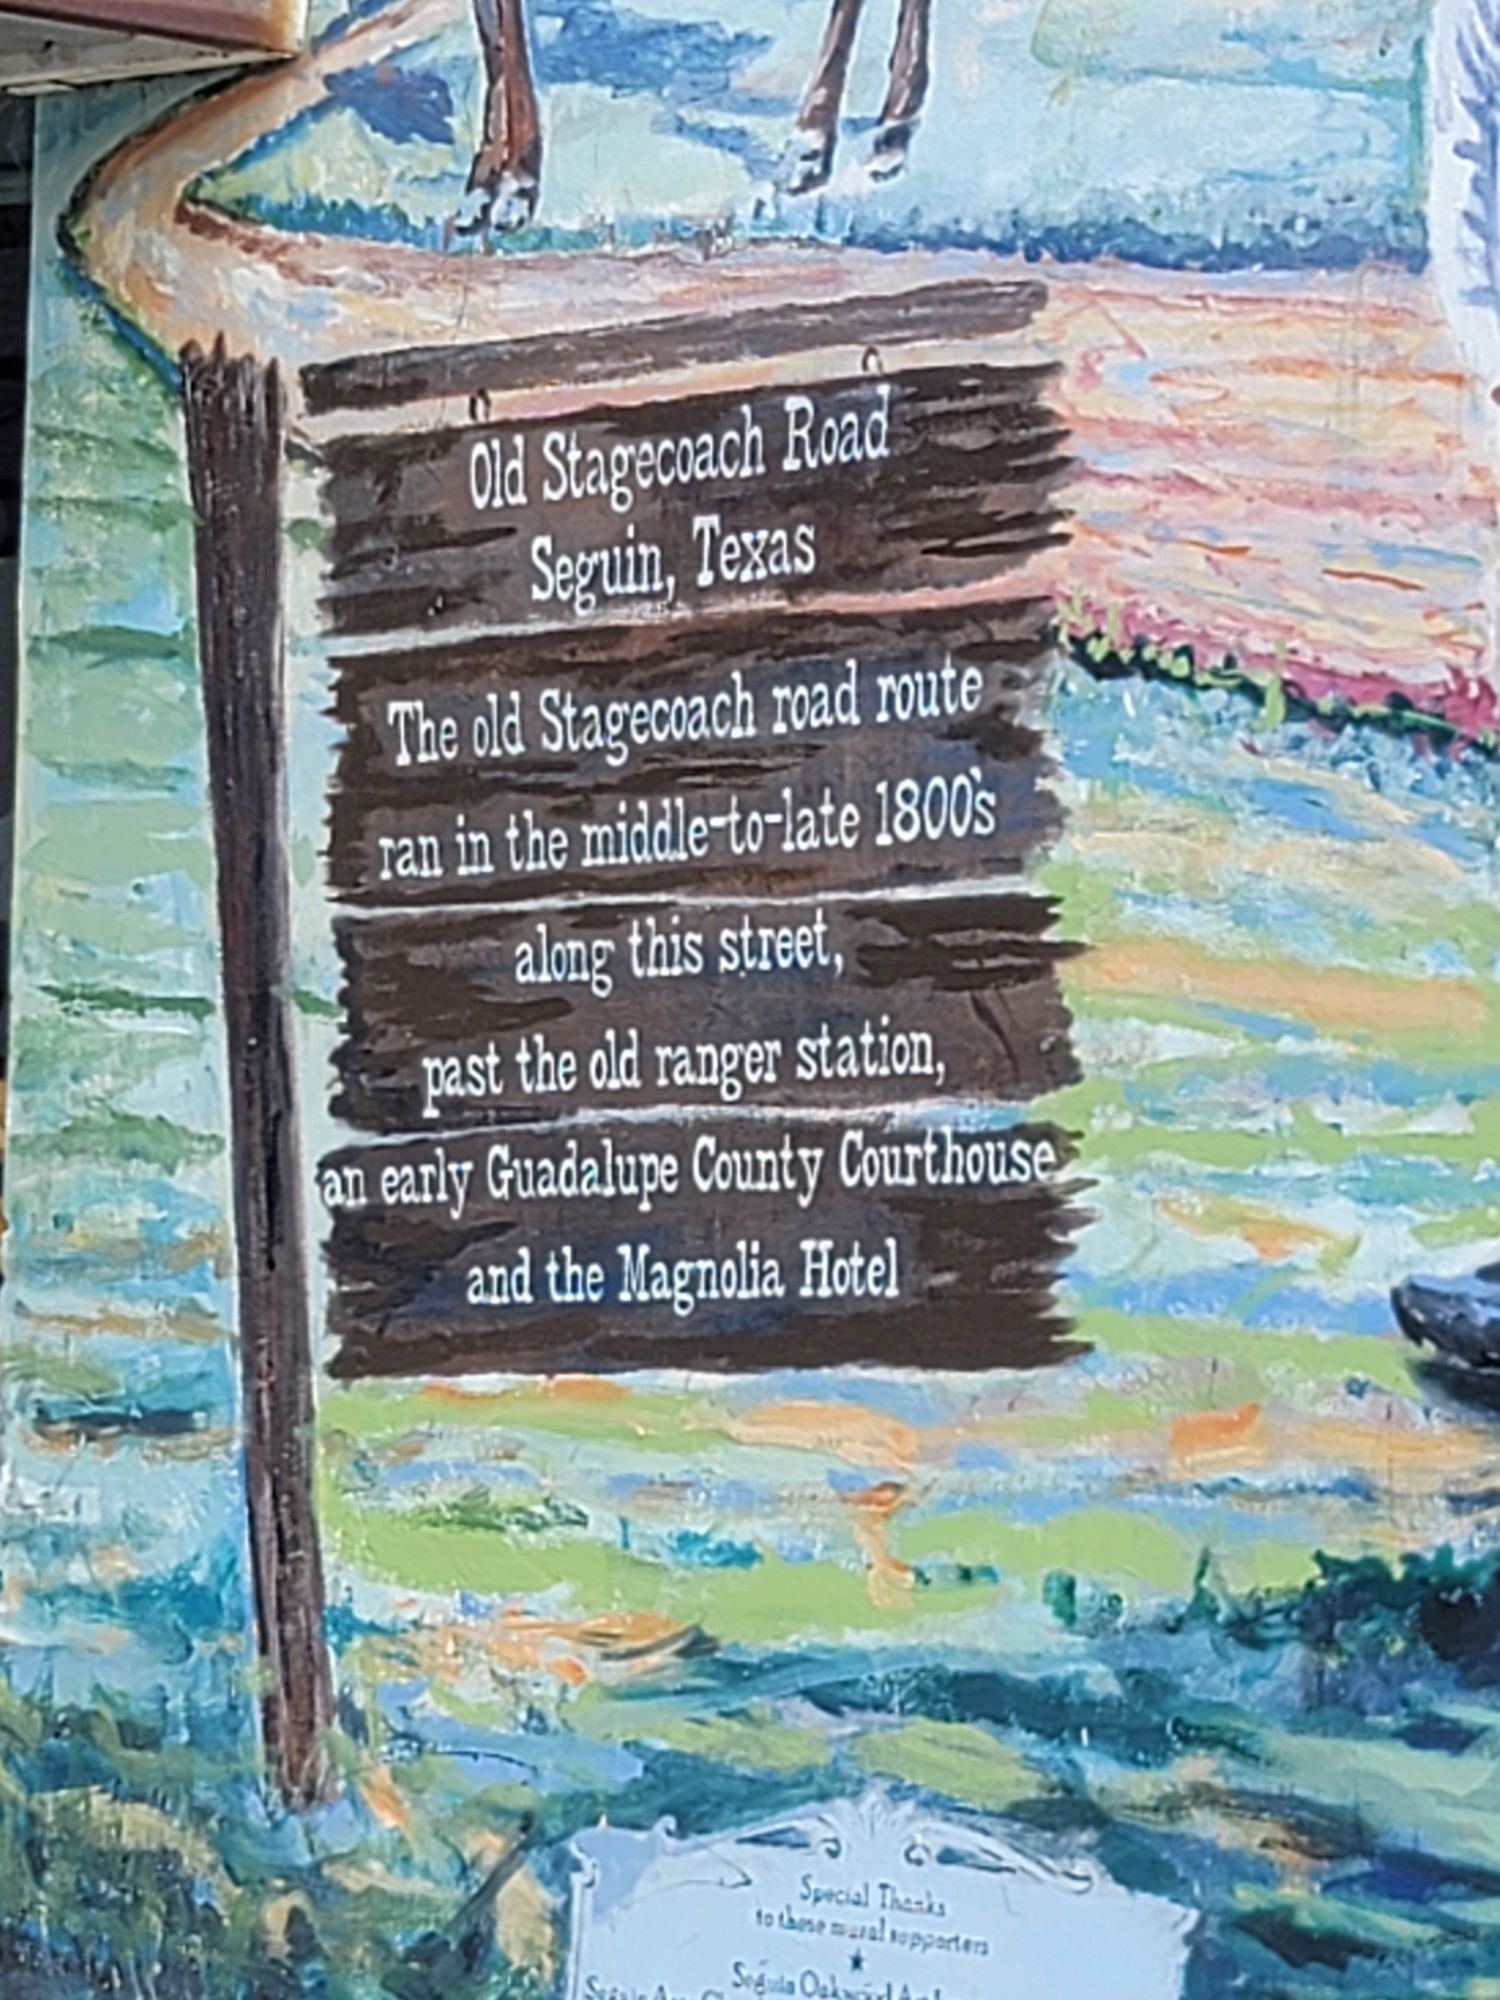 Old Stagecoach Road
Seguin, Texas
The old Stagecoach road route
ran in the middle-to-late 1800's
along this street,
past the old ranger station,
an early Guadalupe County Courthouse
and the Magnolia Hotel
Special Thanks
to these mural supporters
Seguin Oakwood Art
Seguin Area